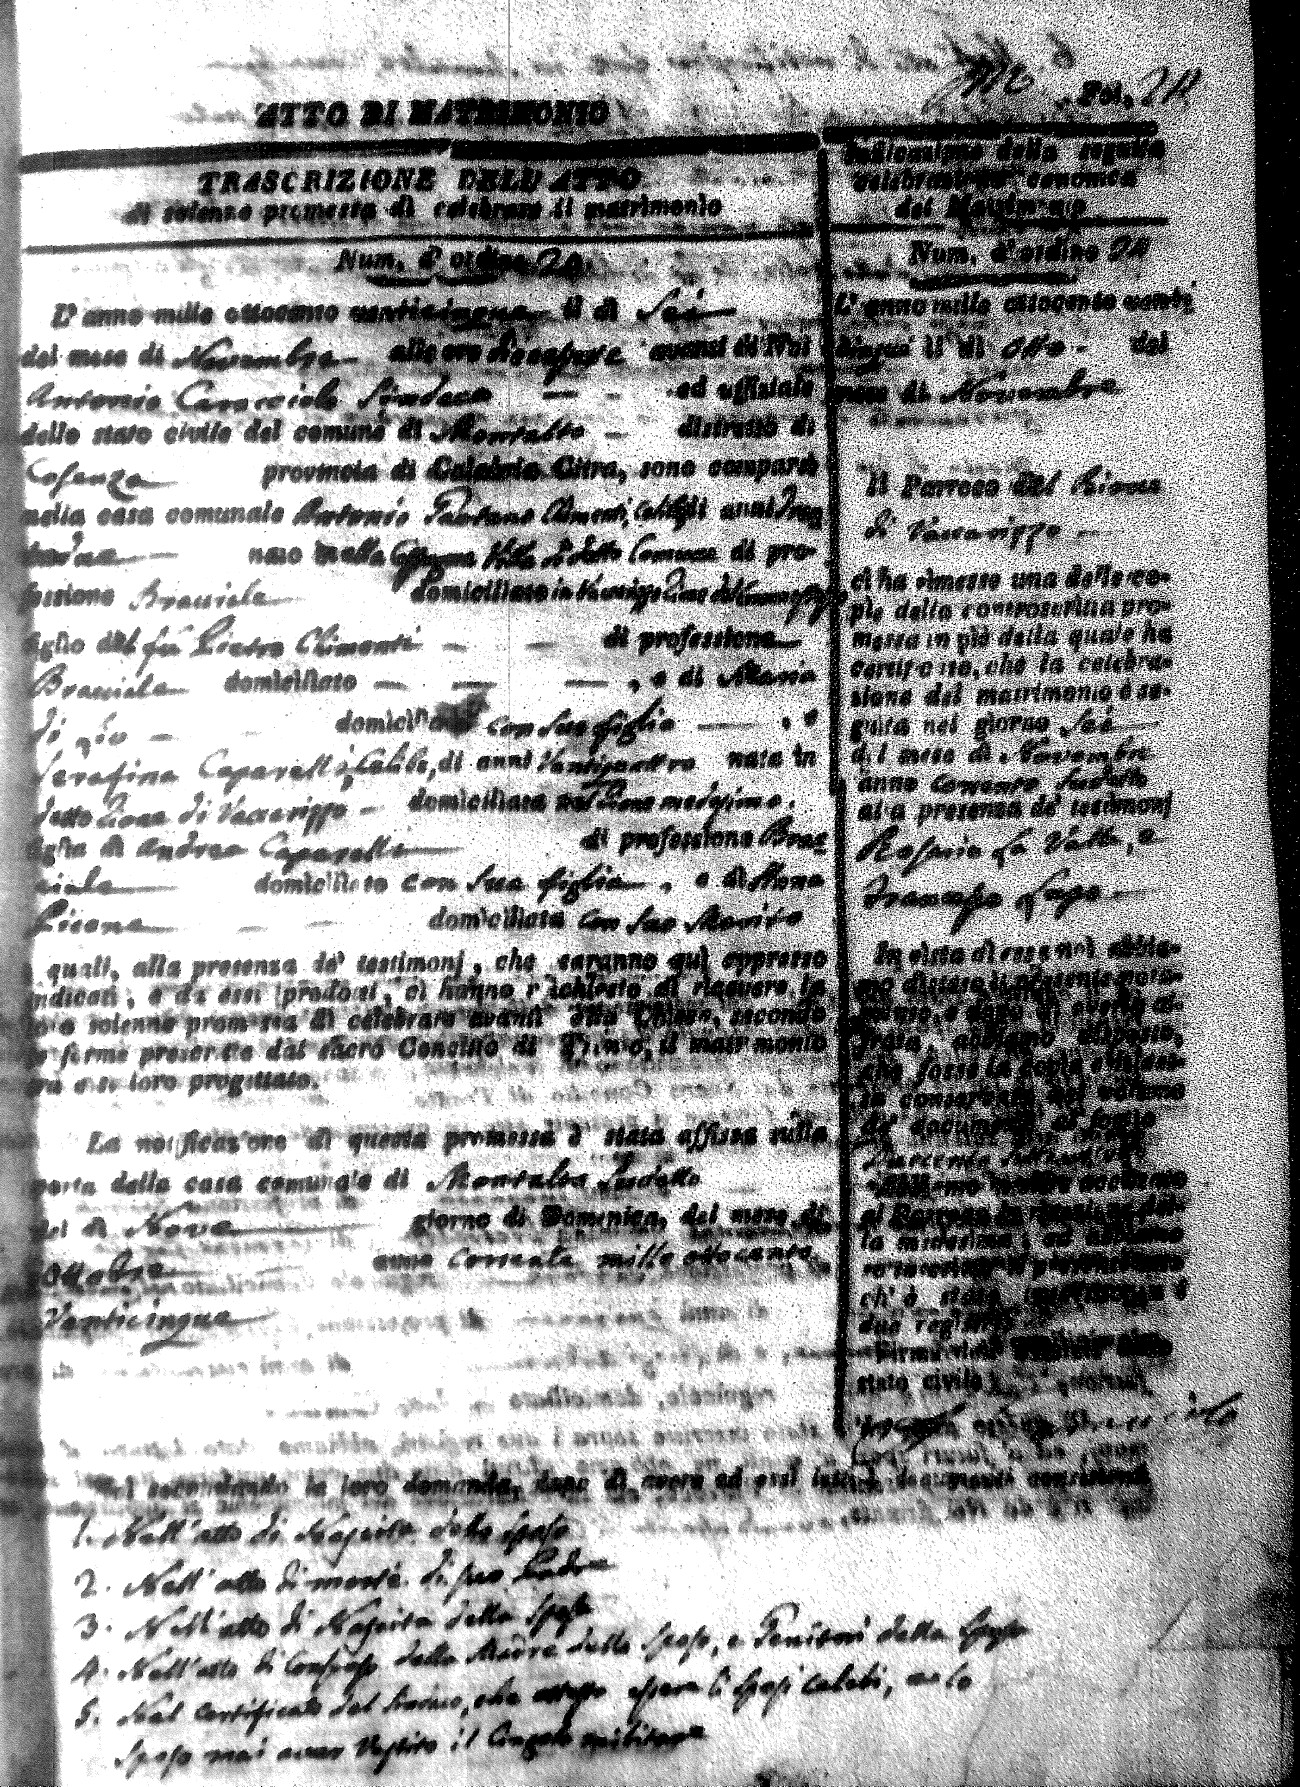 Fol. 24
ATTO DI MATRIMONIO
TRASCRIZIONE DELL'ATTO
di solenne promessa di celebrare il matrimonio
Num. d'ordine 24.
L'anno mille ottocento venticinque il dì Sei
del mese di Novembre alle ore avanti di Noi
Antonio Caracciolo Sindaco ed uffiziale
dello stato civile del comune di Montalto distretto di
Cosenza provincia di Calabria Citra, sono comparsi
nella casa comunale Antonio Climenti, Celibe di anni
nato nella Comune di pro-
fessione Bracciale domiciliato in Vaccarizzo
figlio del fu Pietro Climenti di professione
Bracciale domiciliato , e di Maria
di domiciliata con suo figlio , e
Serafina Caparelli, Celibe, di anni Ventiquattro nata in
detto Rione di Vaccarizzo domiciliata nel Rione medesimo.
figlia di Andrea Caparelli di professione Brac
ciale domiciliato con sua figlia , e di
domiciliata con suo Marito
i quali, alla presenza de' testimonj, che saranno quì appresso
indicati, e da essi prodotti, ci hanno richiesto di ricevere la
loro solenne promessa di celebrare avanti alla Chiesa, secondo
le forme prescritte dal sacro Concilio di Trento, il matrimonio
tra essi loro progittato.
La notificazione di questa promessa è stata affissa sulla
porta della casa comunale di Montalto sudetto
nel dì Nove giorno di Domenica, del mese di
Ottobre anno corrente mille ottocento
Venticinque
Noi secondando la loro domanda, dopo di avere ad essi letti i documenti consistenti
1. Nell'atto di Nascita dello Sposo
2. Nell'atto di morte di suo Padre
3. Nell'atto di Nascita della Sposa
4. Nell'atto di Consenso della Madre dello Sposo, e Genitori della Sposa
5. Nel certificato del Parroco, che essere li Sposi celibi, e lo
Sposo mai aver Vestito il Cingolo militare
Indicazione della seguita
celebrazione canonica
del Matrimonio
Num. d'ordine 24
L'anno mille ottocento venti
cinque il dì otto del
mese di Novembre
Il Parroco del Rione
di Vaccarizzo
ci ha rimesso una delle co-
pie della controscritta pro-
messa in piè della quale ha
certificato, che la celebra-
zione del matrimonio è se-
guita nel giorno sei
del mese di Novembre
anno corrente sudetto
alla presenza de' testimonj
Rosario La Valle, e
In vista di essa noi abbia-
mo disteso il presente nota-
mento, e dopo di averlo ci-
frato, abbiamo disposto,
che fosse la copia anzidet-
ta conservata nel volume
de' documenti al foglio
Abbiamo inoltre accusato
al Parroco la ricezione del-
la medesima, ed abbiamo
sottoscritto il presente atto
ch' è stato inscritto su i
due registri
Firma dell' uffiziale dello
stato civile